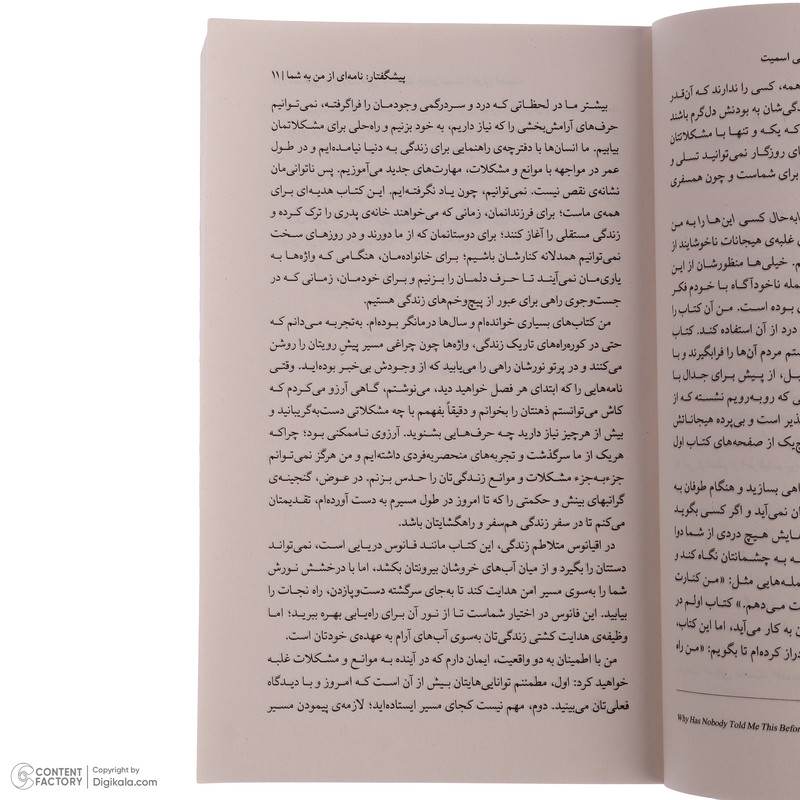 پیشگفتار: نامه‌ای از من به شما | ۱۱
بیشتر ما در لحظاتی که درد و سردرگمی وجودمان را فراگرفته، نمی‌توانیم
حرف‌های آرامش‌بخشی را که نیاز داریم، به خود بزنیم و راه‌حلی برای مشکلاتمان
بیابیم. ما انسان‌ها با دفترچه‌ی راهنمایی برای زندگی به دنیا نیامده‌ایم و در طول
عمر در مواجهه با موانع و مشکلات، مهارت‌های جدید می‌آموزیم. پس ناتوانی‌مان
نشانه‌ی نقص نیست. نمی‌توانیم، چون یاد نگرفته‌ایم. این کتاب هدیه‌ای برای
همه‌ی ماست؛ برای فرزندانمان، زمانی که می‌خواهند خانه‌ی پدری را ترک کرده و
زندگی مستقلی را آغاز کنند؛ برای دوستانمان که از ما دورند و در روزهای سخت
نمی‌توانیم همدلانه کنارشان باشیم؛ برای خانواده‌مان، هنگامی که واژه‌ها به
یاری‌مان نمی‌آیند تا حرف دلمان را بزنیم و برای خودمان، زمانی که در
جست‌وجوی راهی برای عبور از پیچ‌وخم‌های زندگی هستیم.
من کتاب‌های بسیاری خوانده‌ام و سال‌ها درمانگر بوده‌ام. به‌تجربه می‌دانم که
حتی در کوره‌راه‌های تاریک زندگی، واژه‌ها چون چراغی مسیر پیش رویتان را روشن
می‌کنند و در پرتو نورشان راهی را می‌یابید که از وجودش بی‌خبر بوده‌اید. وقتی
نامه‌هایی را که ابتدای هر فصل خواهید دید، می‌نوشتم، گاهی آرزو می‌کردم که
کاش می‌توانستم ذهنتان را بخوانم و دقیقاً بفهمم با چه مشکلاتی دست‌به‌گریبانید و
بیش از هرچیز نیاز دارید چه حرف‌هایی بشنوید. آرزوی ناممکنی بود؛ چراکه
هریک از ما سرگذشت و تجربه‌های منحصربه‌فردی داشته‌ایم و من هرگز نمی‌توانم
جزءبه‌جزء مشکلات و موانع زندگی‌تان را حدس بزنم. در عوض، گنجینه‌ی
گرانبهای بینش و حکمتی را که تا امروز در طول مسیرم به دست آورده‌ام، تقدیمتان
می‌کنم تا در سفر زندگی هم‌سفر و راهگشایتان باشد.
در اقیانوس متلاطم زندگی، این کتاب مانند فانوس دریایی است، نمی‌تواند
دستتان را بگیرد و از میان آب‌های خروشان بیرونتان بکشد، اما با درخشش نورش
شما را به‌سوی مسیر امن هدایت کند تا به‌جای سرگشته دست‌وپازدن، راه نجات را
بیابید. این فانوس در اختیار شماست تا از نور آن برای راه‌یابی بهره ببرید؛ اما
وظیفه‌ی هدایت کشتی زندگی‌تان به‌سوی آب‌های آرام به عهده‌ی خودتان است.
من با اطمینان به دو واقعیت، ایمان دارم که در آینده به موانع و مشکلات غلبه
خواهید کرد: اول، مطمئنم توانایی‌هایتان بیش از آن است که امروز و با دیدگاه
فعلی‌تان می‌بینید. دوم، مهم نیست کجای مسیر ایستاده‌اید؛ لازمه‌ی پیمودن مسیر
اسمیت
همه، کسی را ندارند که آن‌قدر
گی‌شان به بودنش دل‌گرم باشند
که یکه و تنها با مشکلاتتان
ی روزگار نمی‌توانید تسلی و
برای شماست و چون همسفری
به‌حال کسی این‌ها را به من
غلبه‌ی هیجانات ناخوشایند از
م. خیلی‌ها منظورشان از این
مله ناخودآگاه با خودم فکر
بوده است. من آن کتاب را
درد از آن استفاده کند. کتاب
ستم مردم آن‌ها را فرابگیرند و با
یل، از پیش برای جدال با
ی که روبه‌رویم نشسته که از
ذیر است و بی‌پرده هیجاناتش
چ‌یک از صفحه‌های کتاب اول
اهی بسازید و هنگام طوفان به
ان نمی‌آید و اگر کسی بگوید
مایش هیچ دردی از شما دوا
ه به چشمانتان نگاه کند و
مله‌هایی مثل: «من کنارت
ت می‌دهم.» کتاب اولم در
ن به کار می‌آید، اما این کتاب،
دراز کرده‌ام تا بگویم: «من راه
Why Has Nobody Told Me This Befor
CONTENT FACTORY | Copyright by Digikala.com